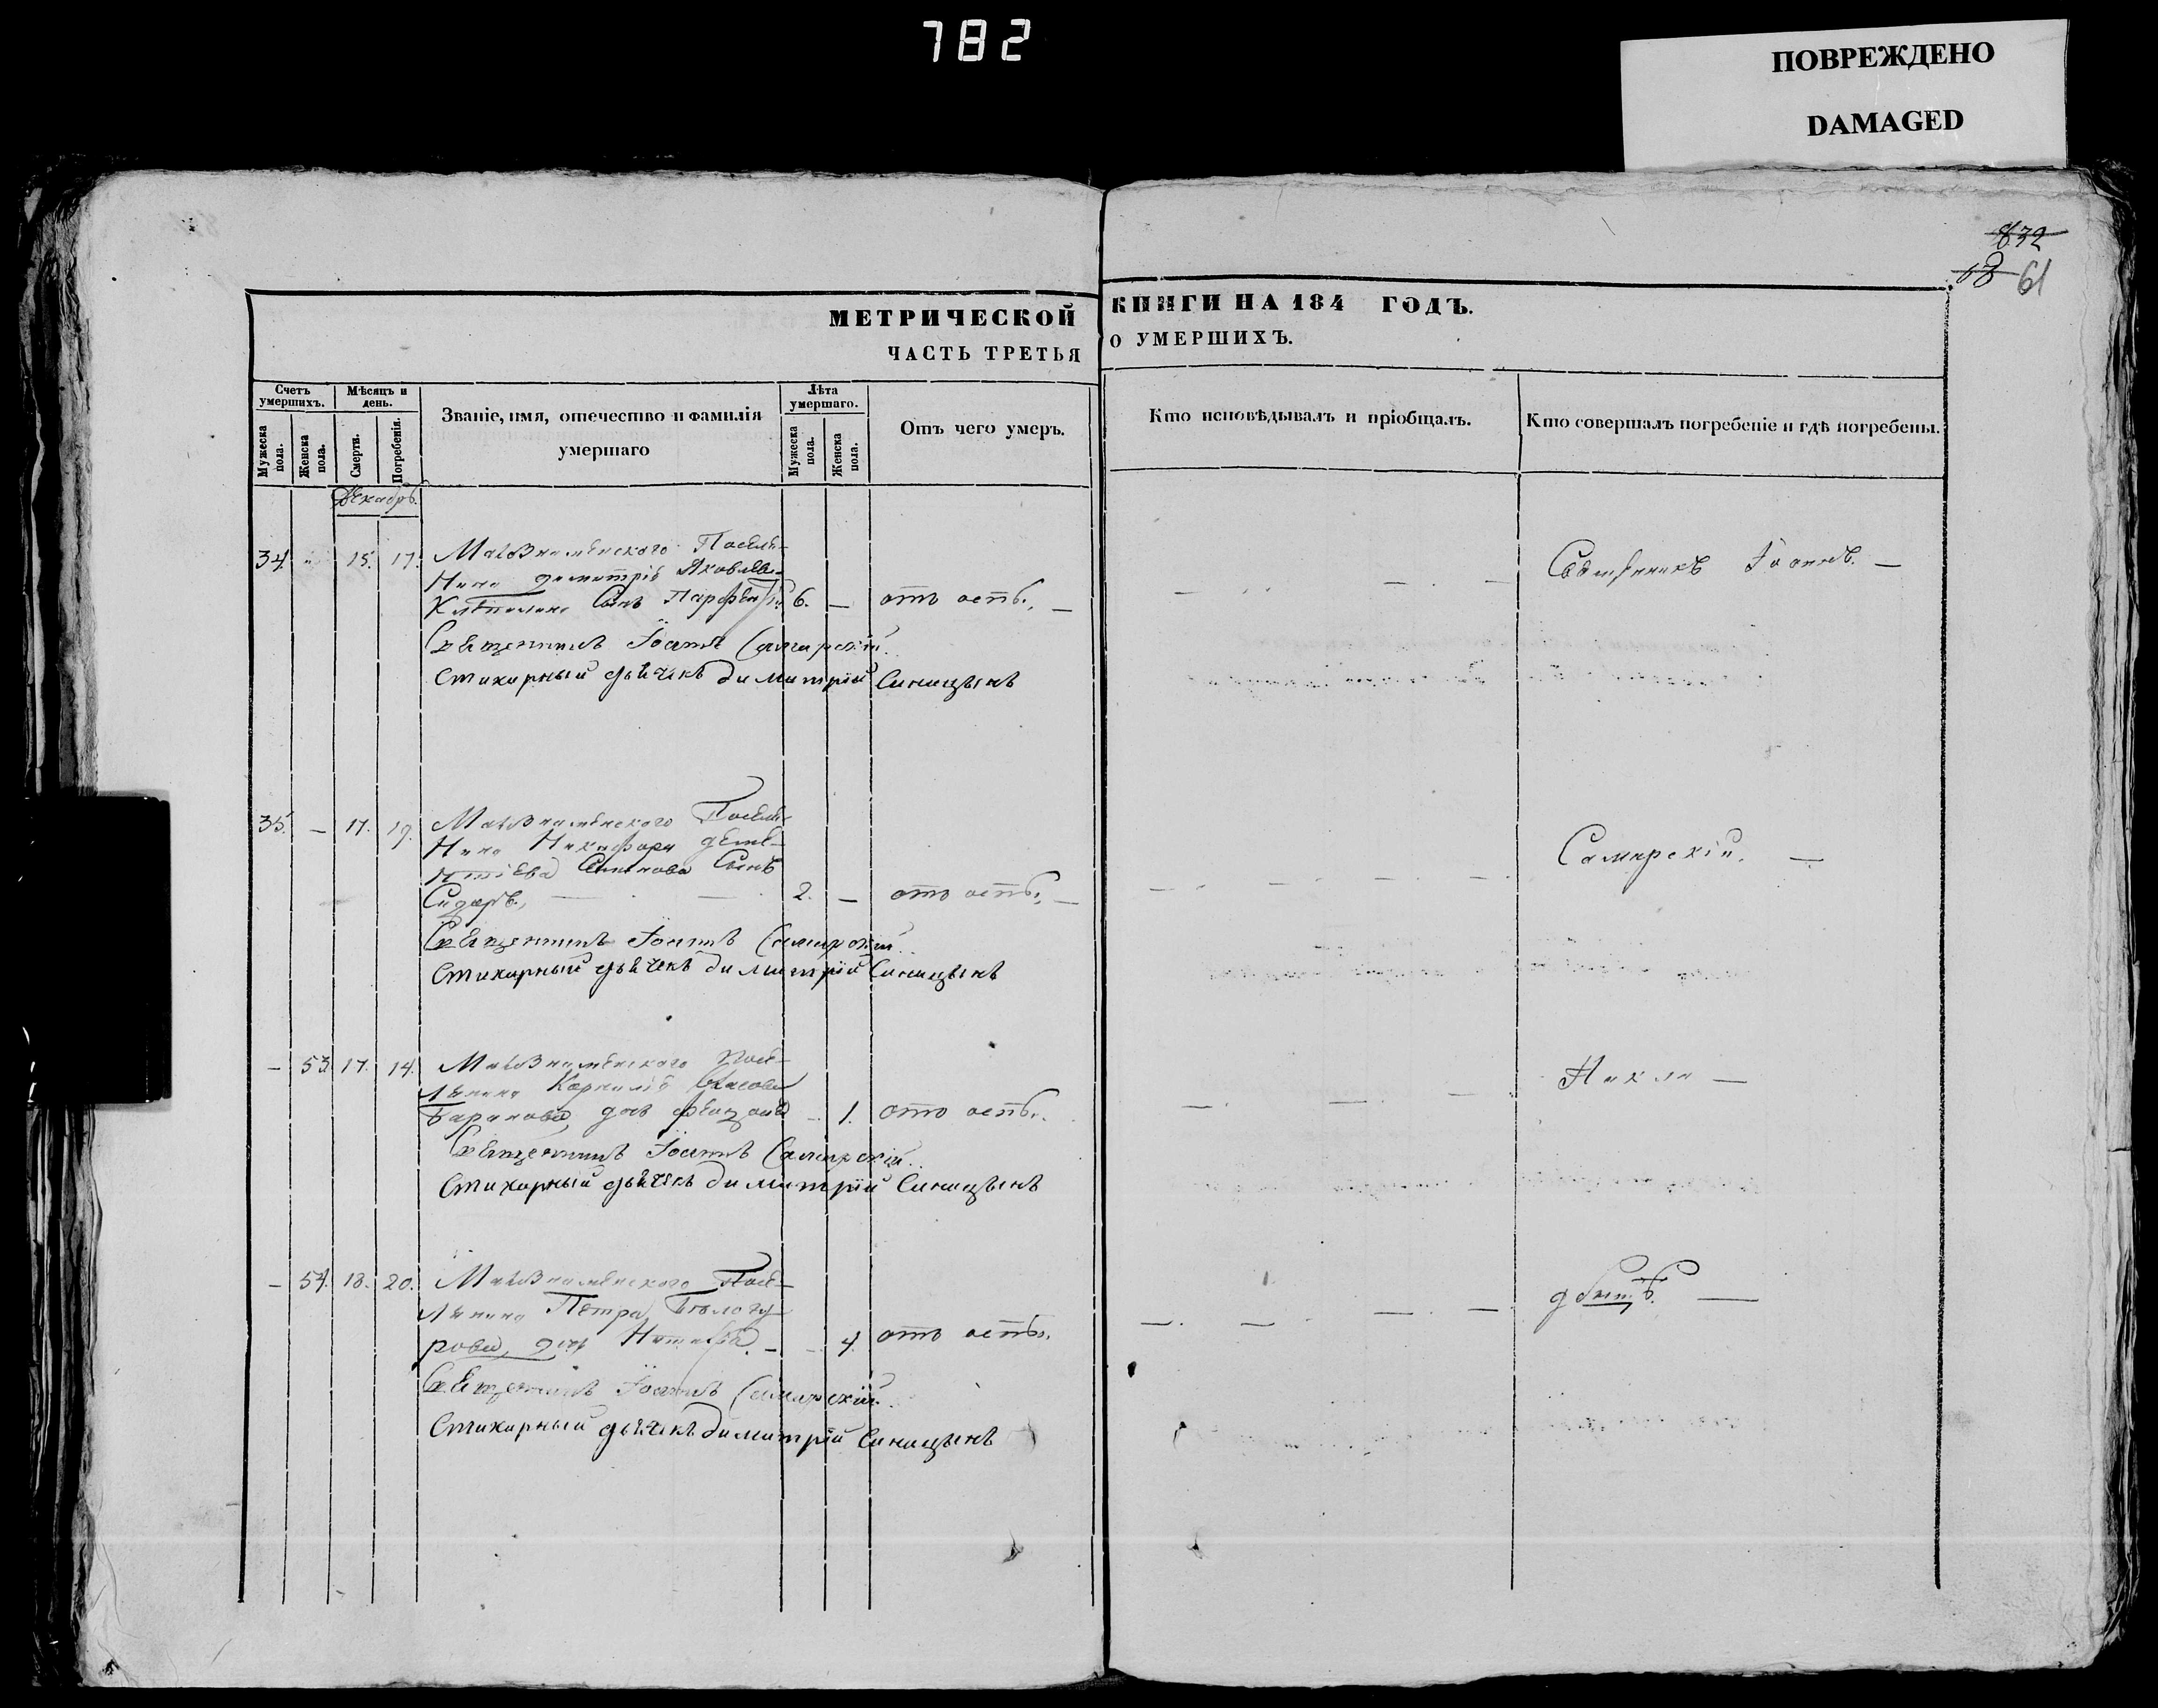 782
ПОВРЕЖДЕНО
DAMAGED
832
68 61
МЕТРИЧЕСКОЙ КНИГИ НА 184 ГОДЪ.
ЧАСТЬ ТРЕТЬЯ О УМЕРШИХЪ.
Счетъ умершихъ.
Мужеска пола.
Женска пола.
Мѣсяцъ и день.
Смерти.
Погребенія.
Званіе, имя, отечество и фамилія умершаго
Лѣта умершаго.
Мужеска пола.
Женска пола.
Отъ чего умеръ.
Кто исповѣдывалъ и пріобщалъ.
Кто совершалъ погребеніе и гдѣ погребены.
Декабрь
34. 15. 17. Поселя-
нина Димитрія Яковлева
Сынъ Парфентій 6. — отъ оспы. —
Священникъ Іоаннъ. —
Священникъ Іоаннъ Самарскій.
Стихарный дьячекъ Димитрій Синицынъ
35. — 17. 19. Поселя-
нина Никифора
Сынъ
Сидоръ, 2. — отъ оспы. —
Самарскій. —
Священникъ Іоаннъ Самарскій.
Стихарный дьячекъ Димитрій Синицынъ
— 53. 17. 19. Посе-
лянина Корнилія Власова
Баранова дочь 1. отъ оспы.
Священникъ Іоаннъ Самарскій.
Стихарный дьячекъ Димитрій Синицынъ
— 54. 18. 20. Посе-
лянина Петра
рова, дочь Наталія. — 4. отъ оспы.
Священникъ Іоаннъ Самарскій.
Стихарный дьячекъ Димитрій Синицынъ